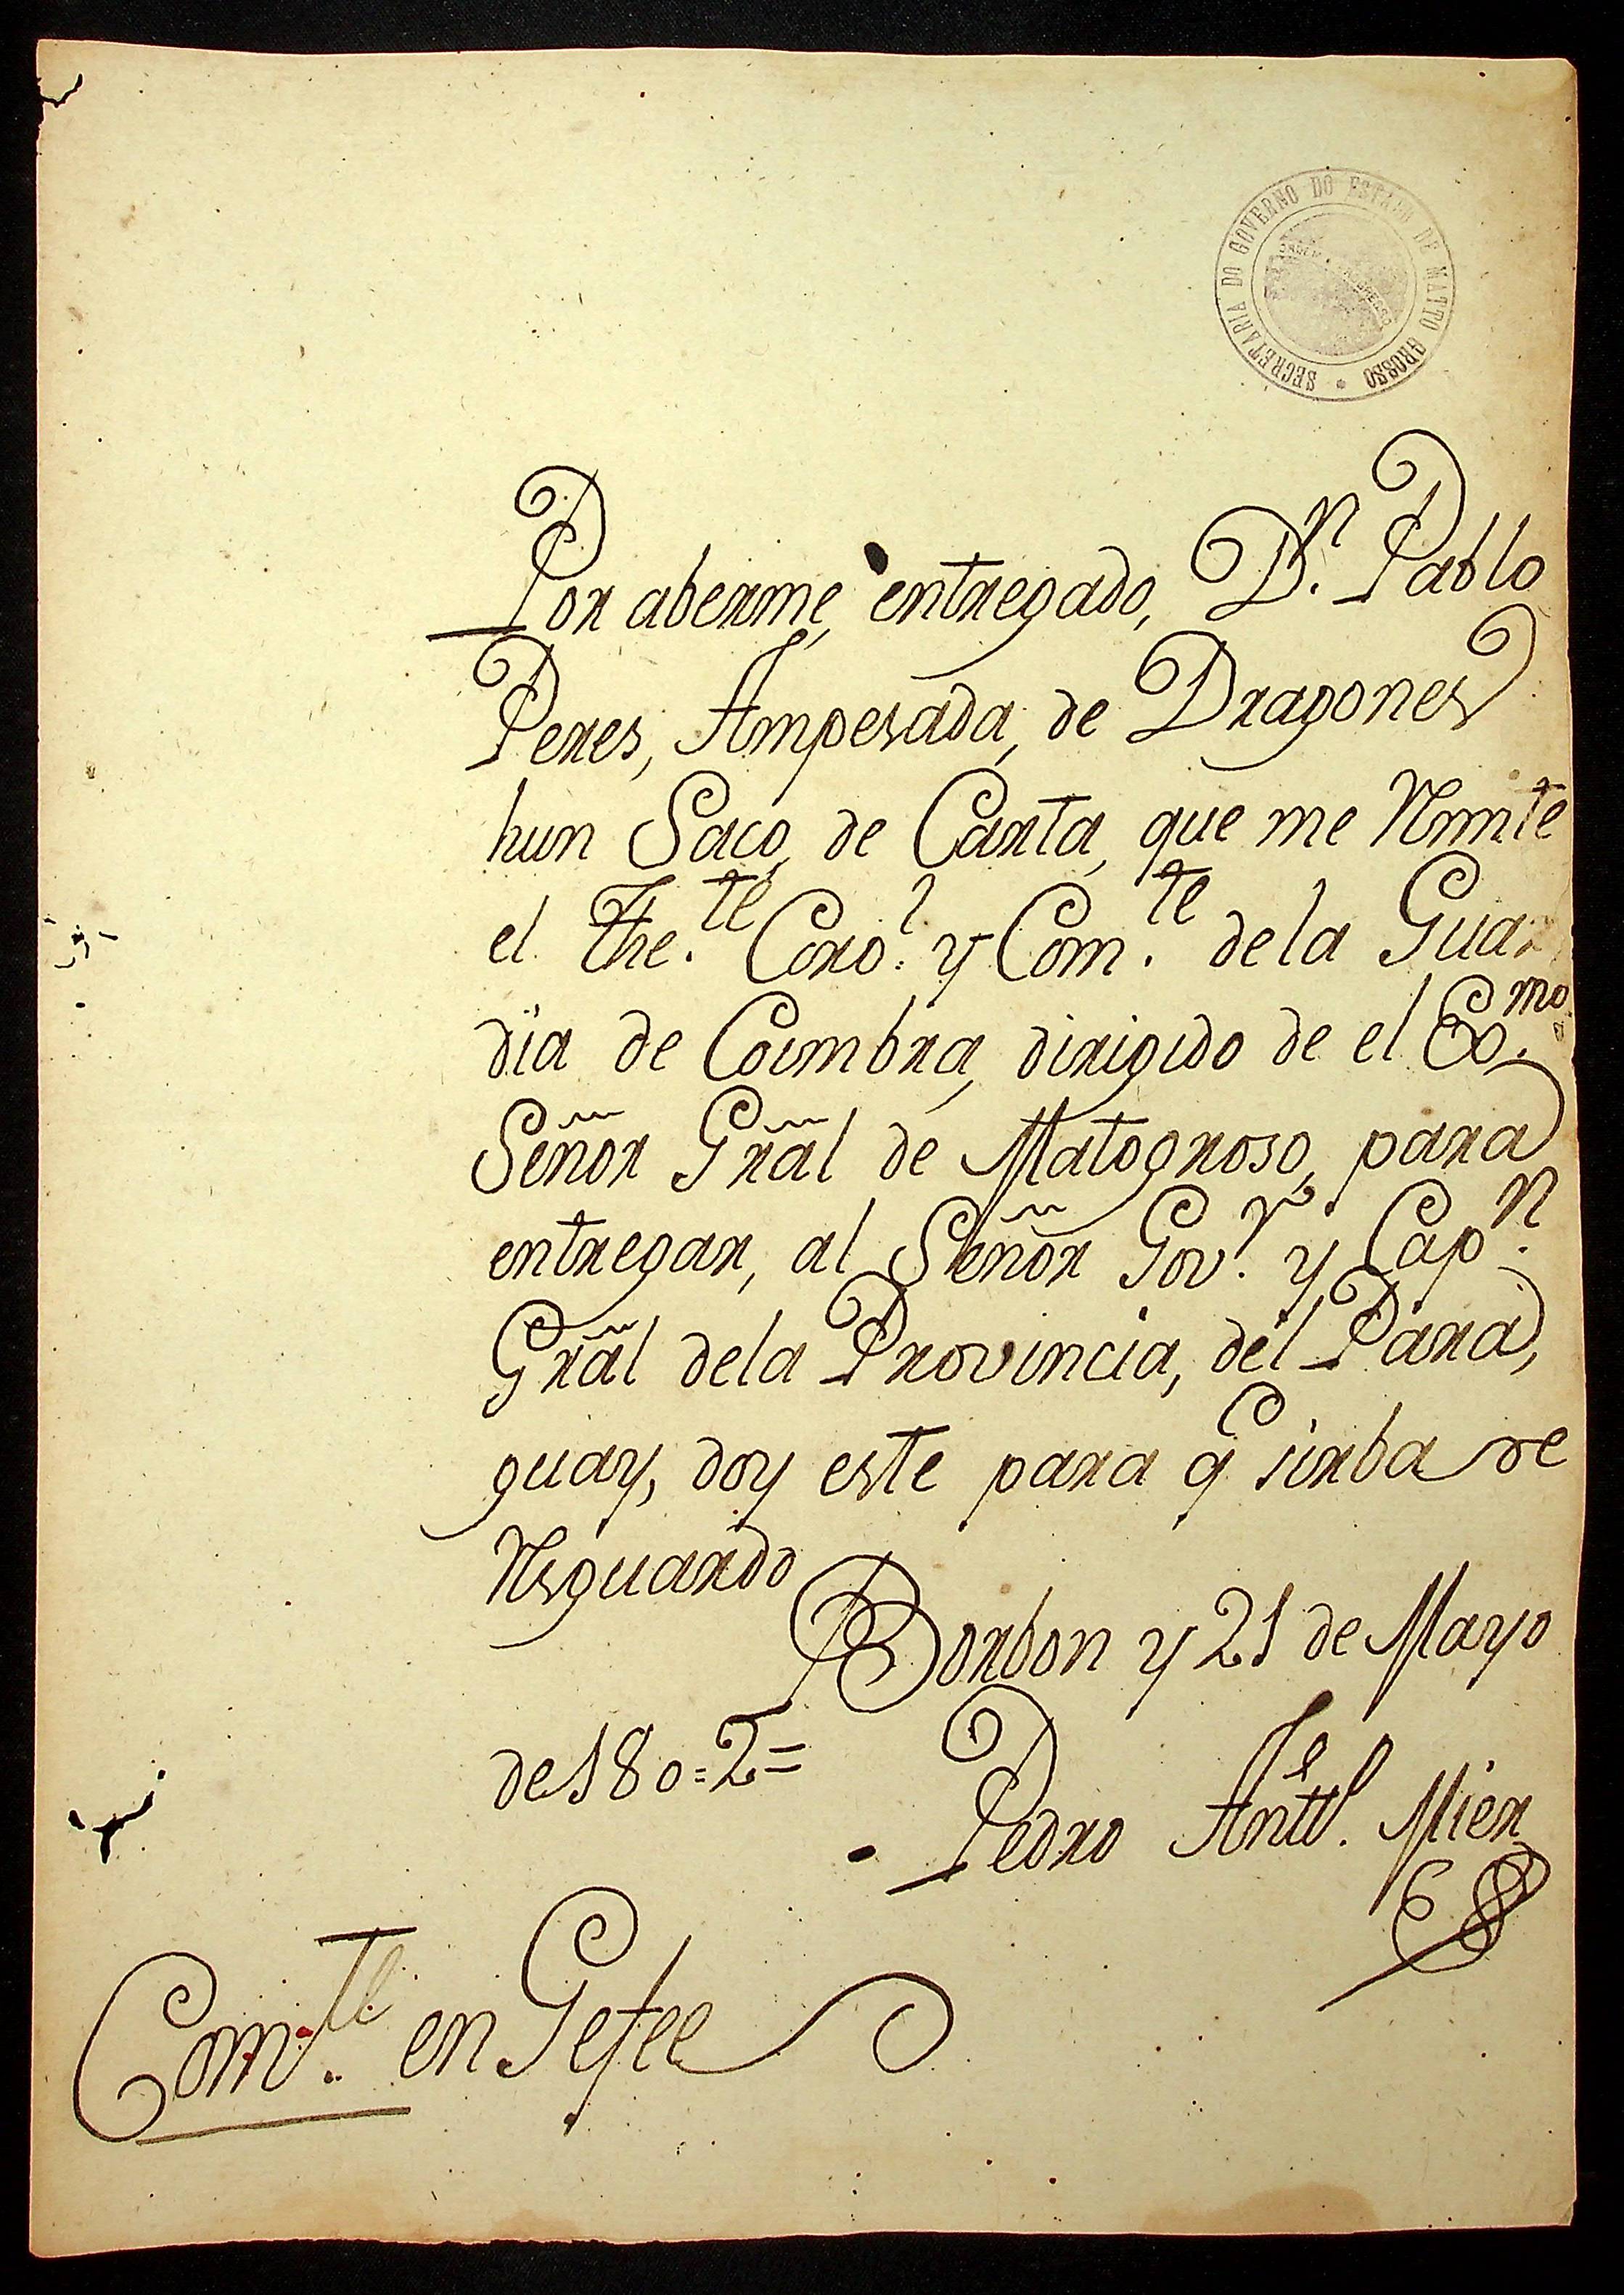 SECRETARIA DO GOVERNO DO ESTADO DE MATTO GROSSO
ORDEM E PROGRESSO
Por aberme, entregado, Dn. Pablo
Peres, Ampesada, de Dragones
hun Saco, de Carta, que me Rmite
el The.te Coro.l y Com.te de la Guar
dia de Coimbra, dirigido de el Exmo.
Señor Grãl de Matogroso, para
entregar, al Señor Gov.r y Capn.
Grãl dela Provincia, del Para,
guay, doy este para q sirba de
Resguardo
Borbon y 21 de Mayo
de 180=2=
Pedro Anto. Mier
Com.te en Gefee